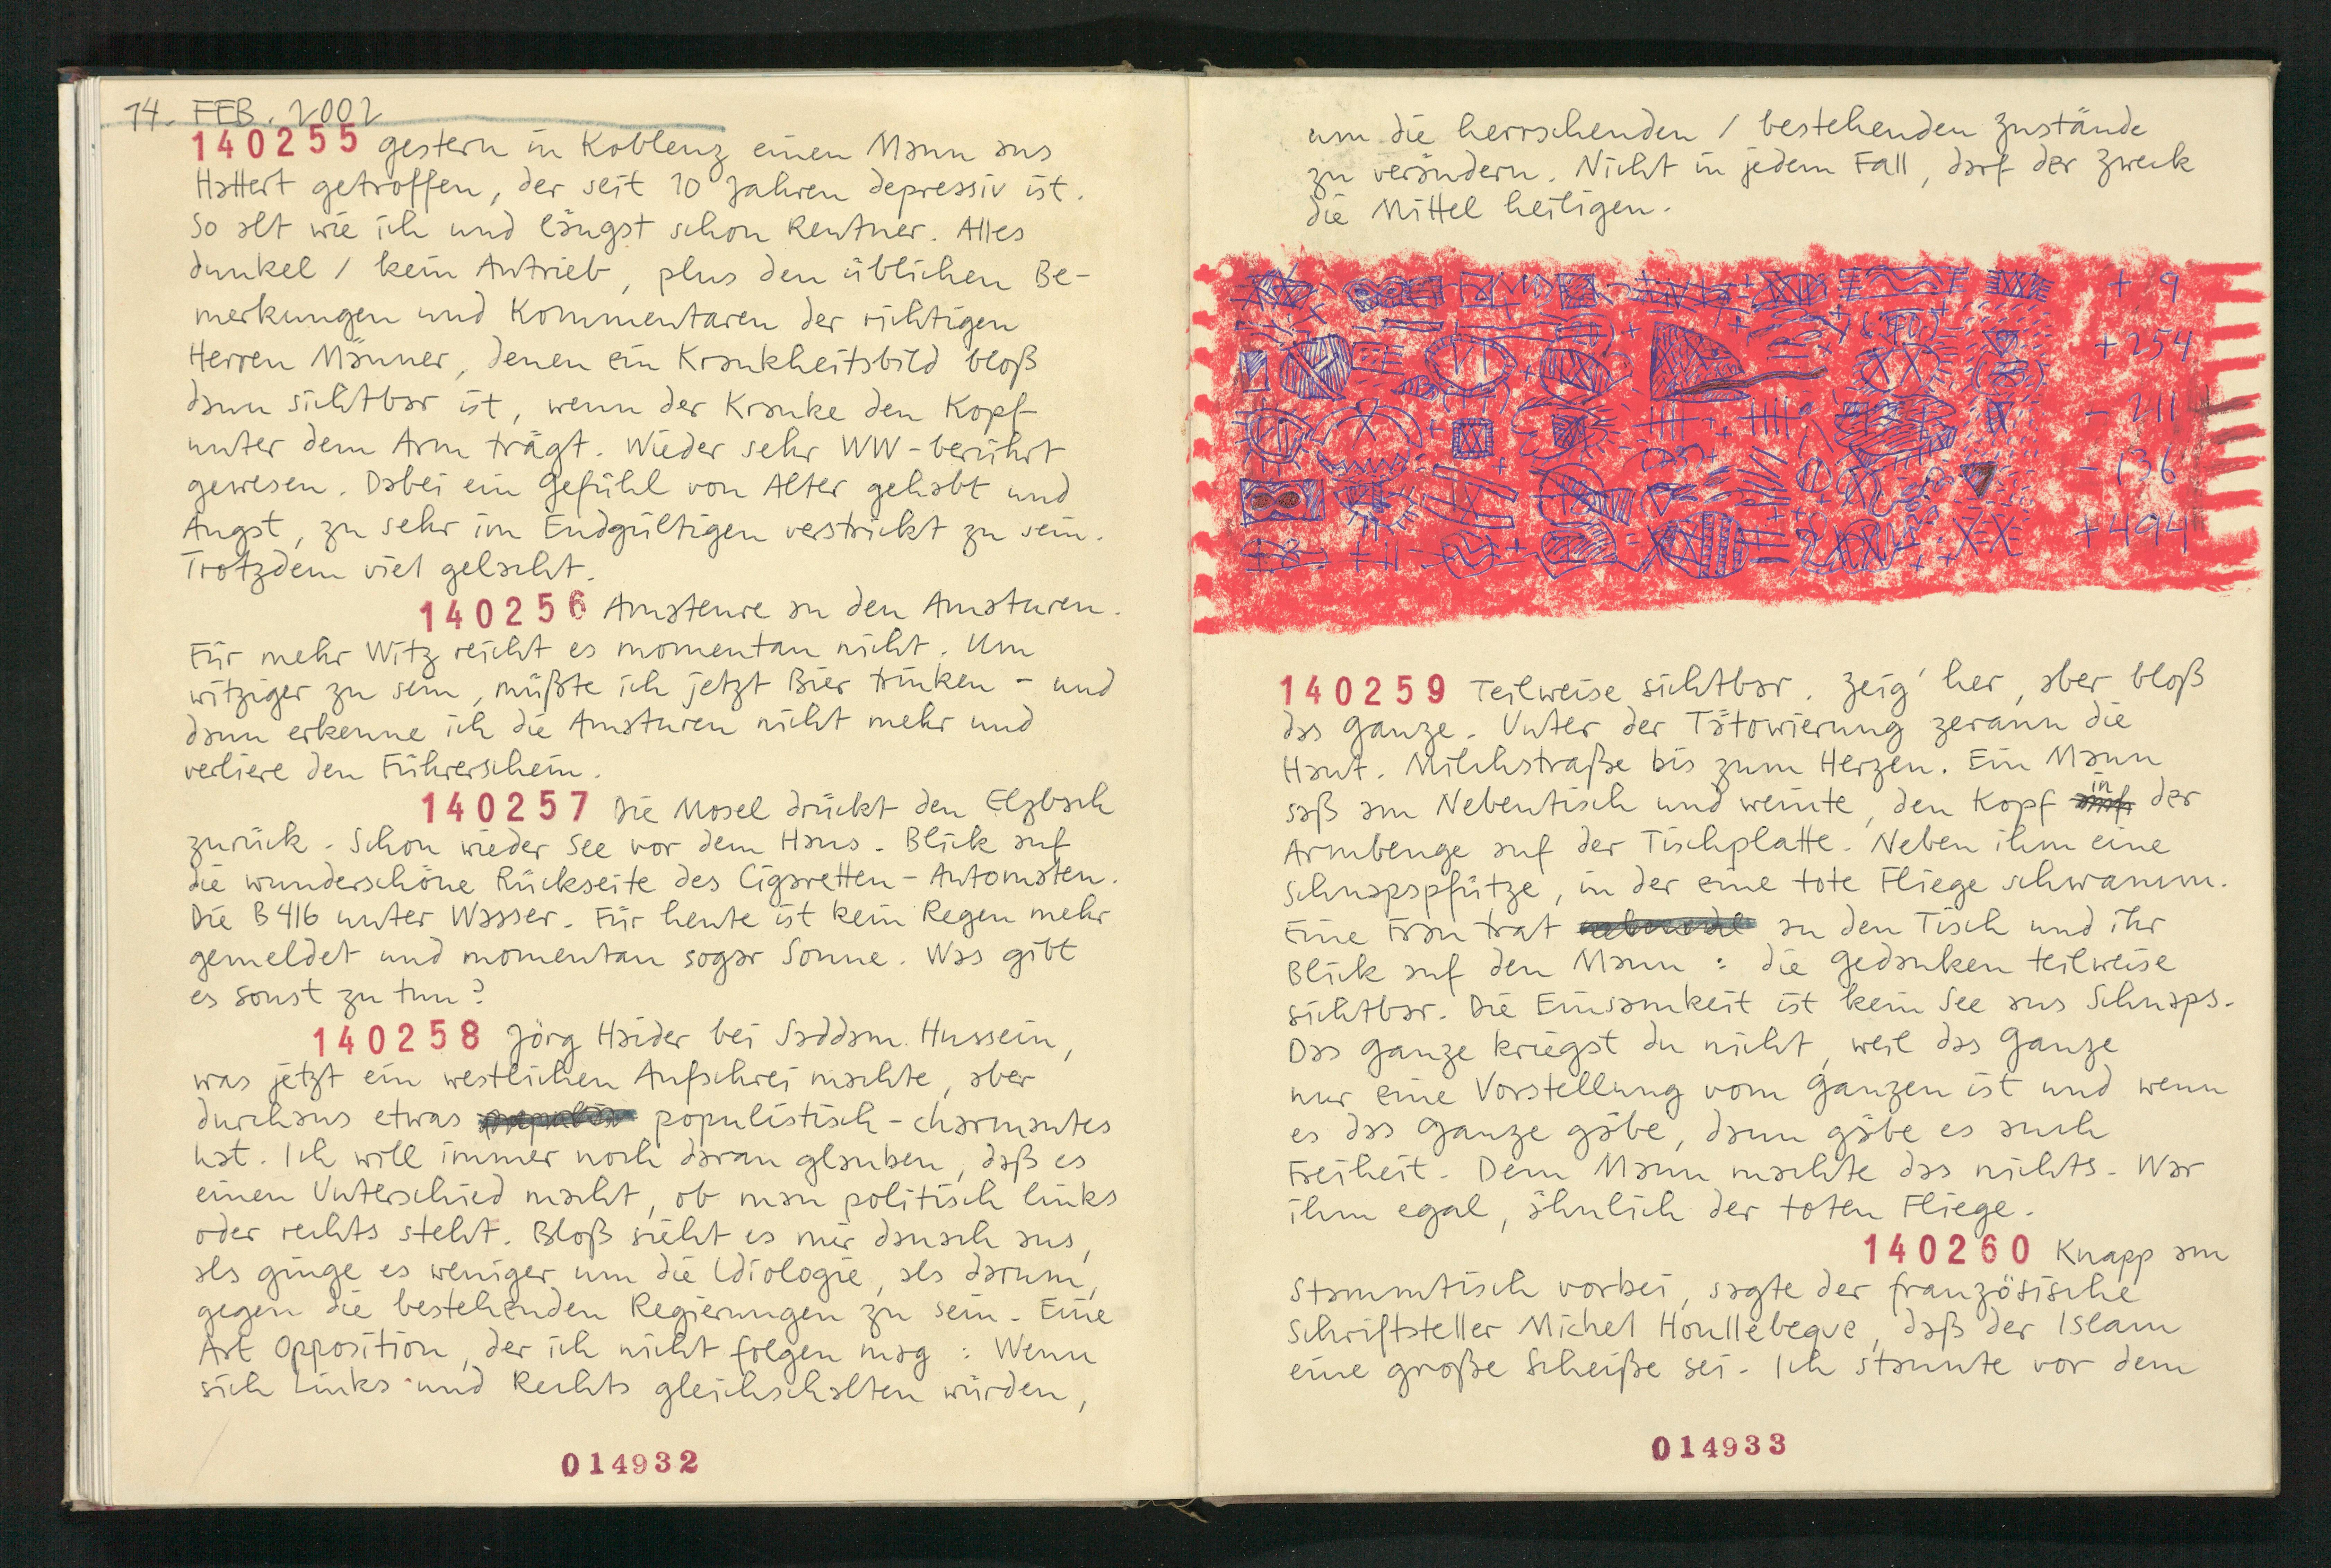 14. FEB. 2002
140255 gestern in Koblenz einen Mann aus
Hattert getroffen, der seit 10 Jahren depressiv ist.
So alt wie ich und längst schon Rentner. Alles
dunkel / kein Antrieb, plus den üblichen Be-
merkungen und Kommentaren der richtigen
Herren Männer, denen ein Krankheitsbild bloß
dann sichtbar ist, wenn der Kranke den Kopf
unter dem Arm trägt. Wieder sehr WW-berührt
gewesen. Dabei ein Gefühl von Alter gehabt und
Angst, zu sehr im Endgültigen verstrickt zu sein.
Trotzdem viel gelacht.
140256 Amateure an den Amaturen.
Für mehr Witz reicht es momentan nicht. Um
witziger zu sein, müßte ich jetzt Bier trinken - und
dann erkenne ich die Amaturen nicht mehr und
verliere den Führerschein.
140257 Die Mosel drückt den Elzbach
zurück. Schon wieder See vor dem Haus. Blick auf
die wunderschöne Rückseite des Cigaretten-Automaten.
Die B416 unter Wasser. Für heute ist kein Regen mehr
gemeldet und momentan sogar Sonne. Was gibt
es sonst zu tun?
140258 Jörg Haider bei Saddam Hussein,
was jetzt ein westlichen Aufschrei machte, aber
durchaus etwas populistisch-charmantes
hat. Ich will immer noch daran glauben, daß es
einen Unterschied macht, ob man politisch links
oder rechts steht. Bloß sieht es mir danach aus,
als ginge es weniger um die Idiologie, als darum,
gegen die bestehenden Regierungen zu sein. Eine
Art Opposition, der ich nicht folgen mag: Wenn
sich Links und Rechts gleichschalten würden,
014932
um die herrschenden / bestehenden Zustände
zu verändern. Nicht in jedem Fall, darf der Zweck
die Mittel heiligen.
+ 9
+254
- 211
- 136
+494
140259 Teilweise sichtbar. Zeig' her, aber bloß
das Ganze. Unter der Tätowierung zerann die
Haut. Milchstraße bis zum Herzen. Ein Mann
saß am Nebentisch und weinte, den Kopf in der
Armbeuge auf der Tischplatte. Neben ihm eine
Schnapspfütze, in der eine tote Fliege schwamm.
Eine Frau trat an den Tisch und ihr
Blick auf den Mann: die Gedanken teilweise
sichtbar. Die Einsamkeit ist kein See aus Schnaps.
Das Ganze kriegst du nicht, weil das Ganze
nur eine Vorstellung vom Ganzen ist und wenn
es das Ganze gäbe, dann gäbe es auch
Freiheit. Dem Mann machte das nichts. War
ihm egal, ähnlich der toten Fliege.
140260 Knapp am
Stammtisch vorbei, sagte der französische
Schriftsteller Michel Houllebeque, daß der Islam
eine große Scheiße sei. Ich staunte vor dem
014933